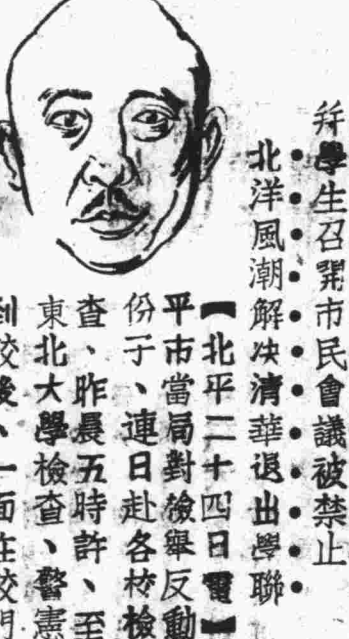 平學生召開市民會議被禁止
北洋風潮解决清華退出學聯
【北平二十四日電】
平市當局對檢舉反動
份子、連日赴各校檢
查、昨晨五時許、至
東北大學檢查、警憲
到校後、一面在校門